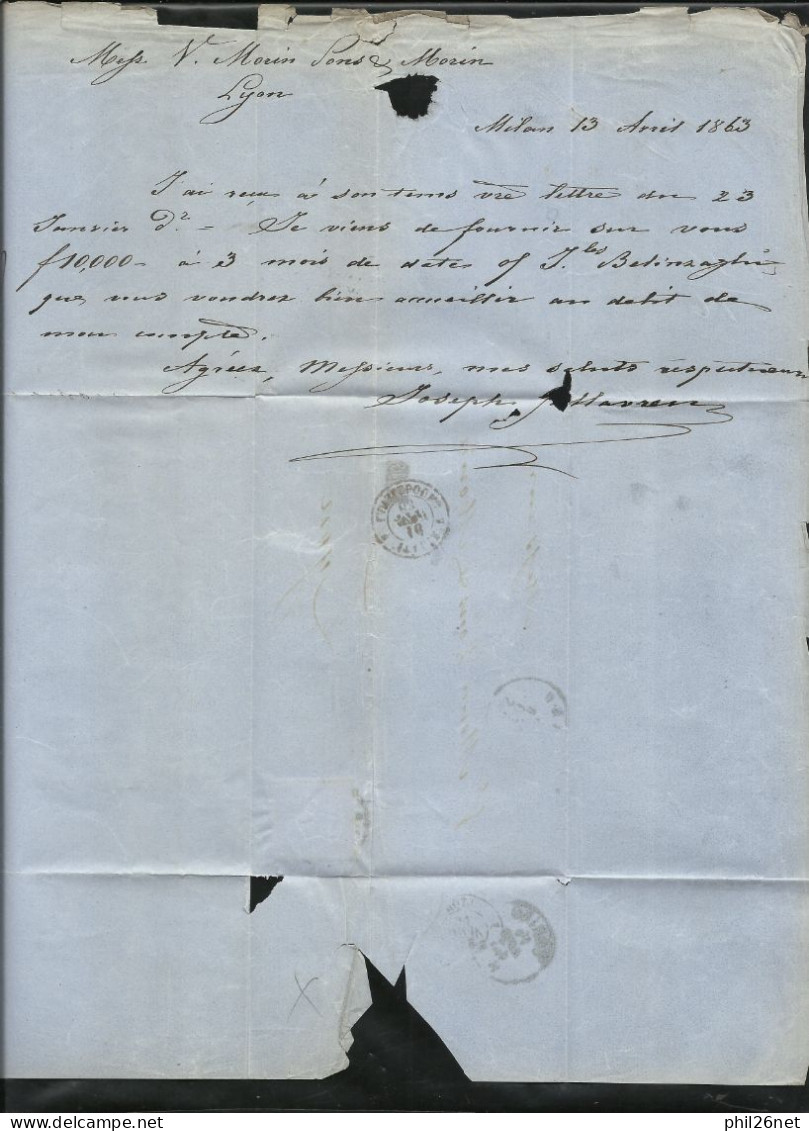 Mess. V. Morin Pons & Morin
Lyon
Milan 13 Avril 1863
J'ai reçu à son tems vre lettre du 23
Janvier dr. - Je viens de fournir sur vous
f 10,000- à 3 mois de date o/ Belinzaghi
que vous voudrez bien accueillir au debit de
mon compte.
Agréez, Messieurs, mes saluts respectueux
Joseph
phil26net